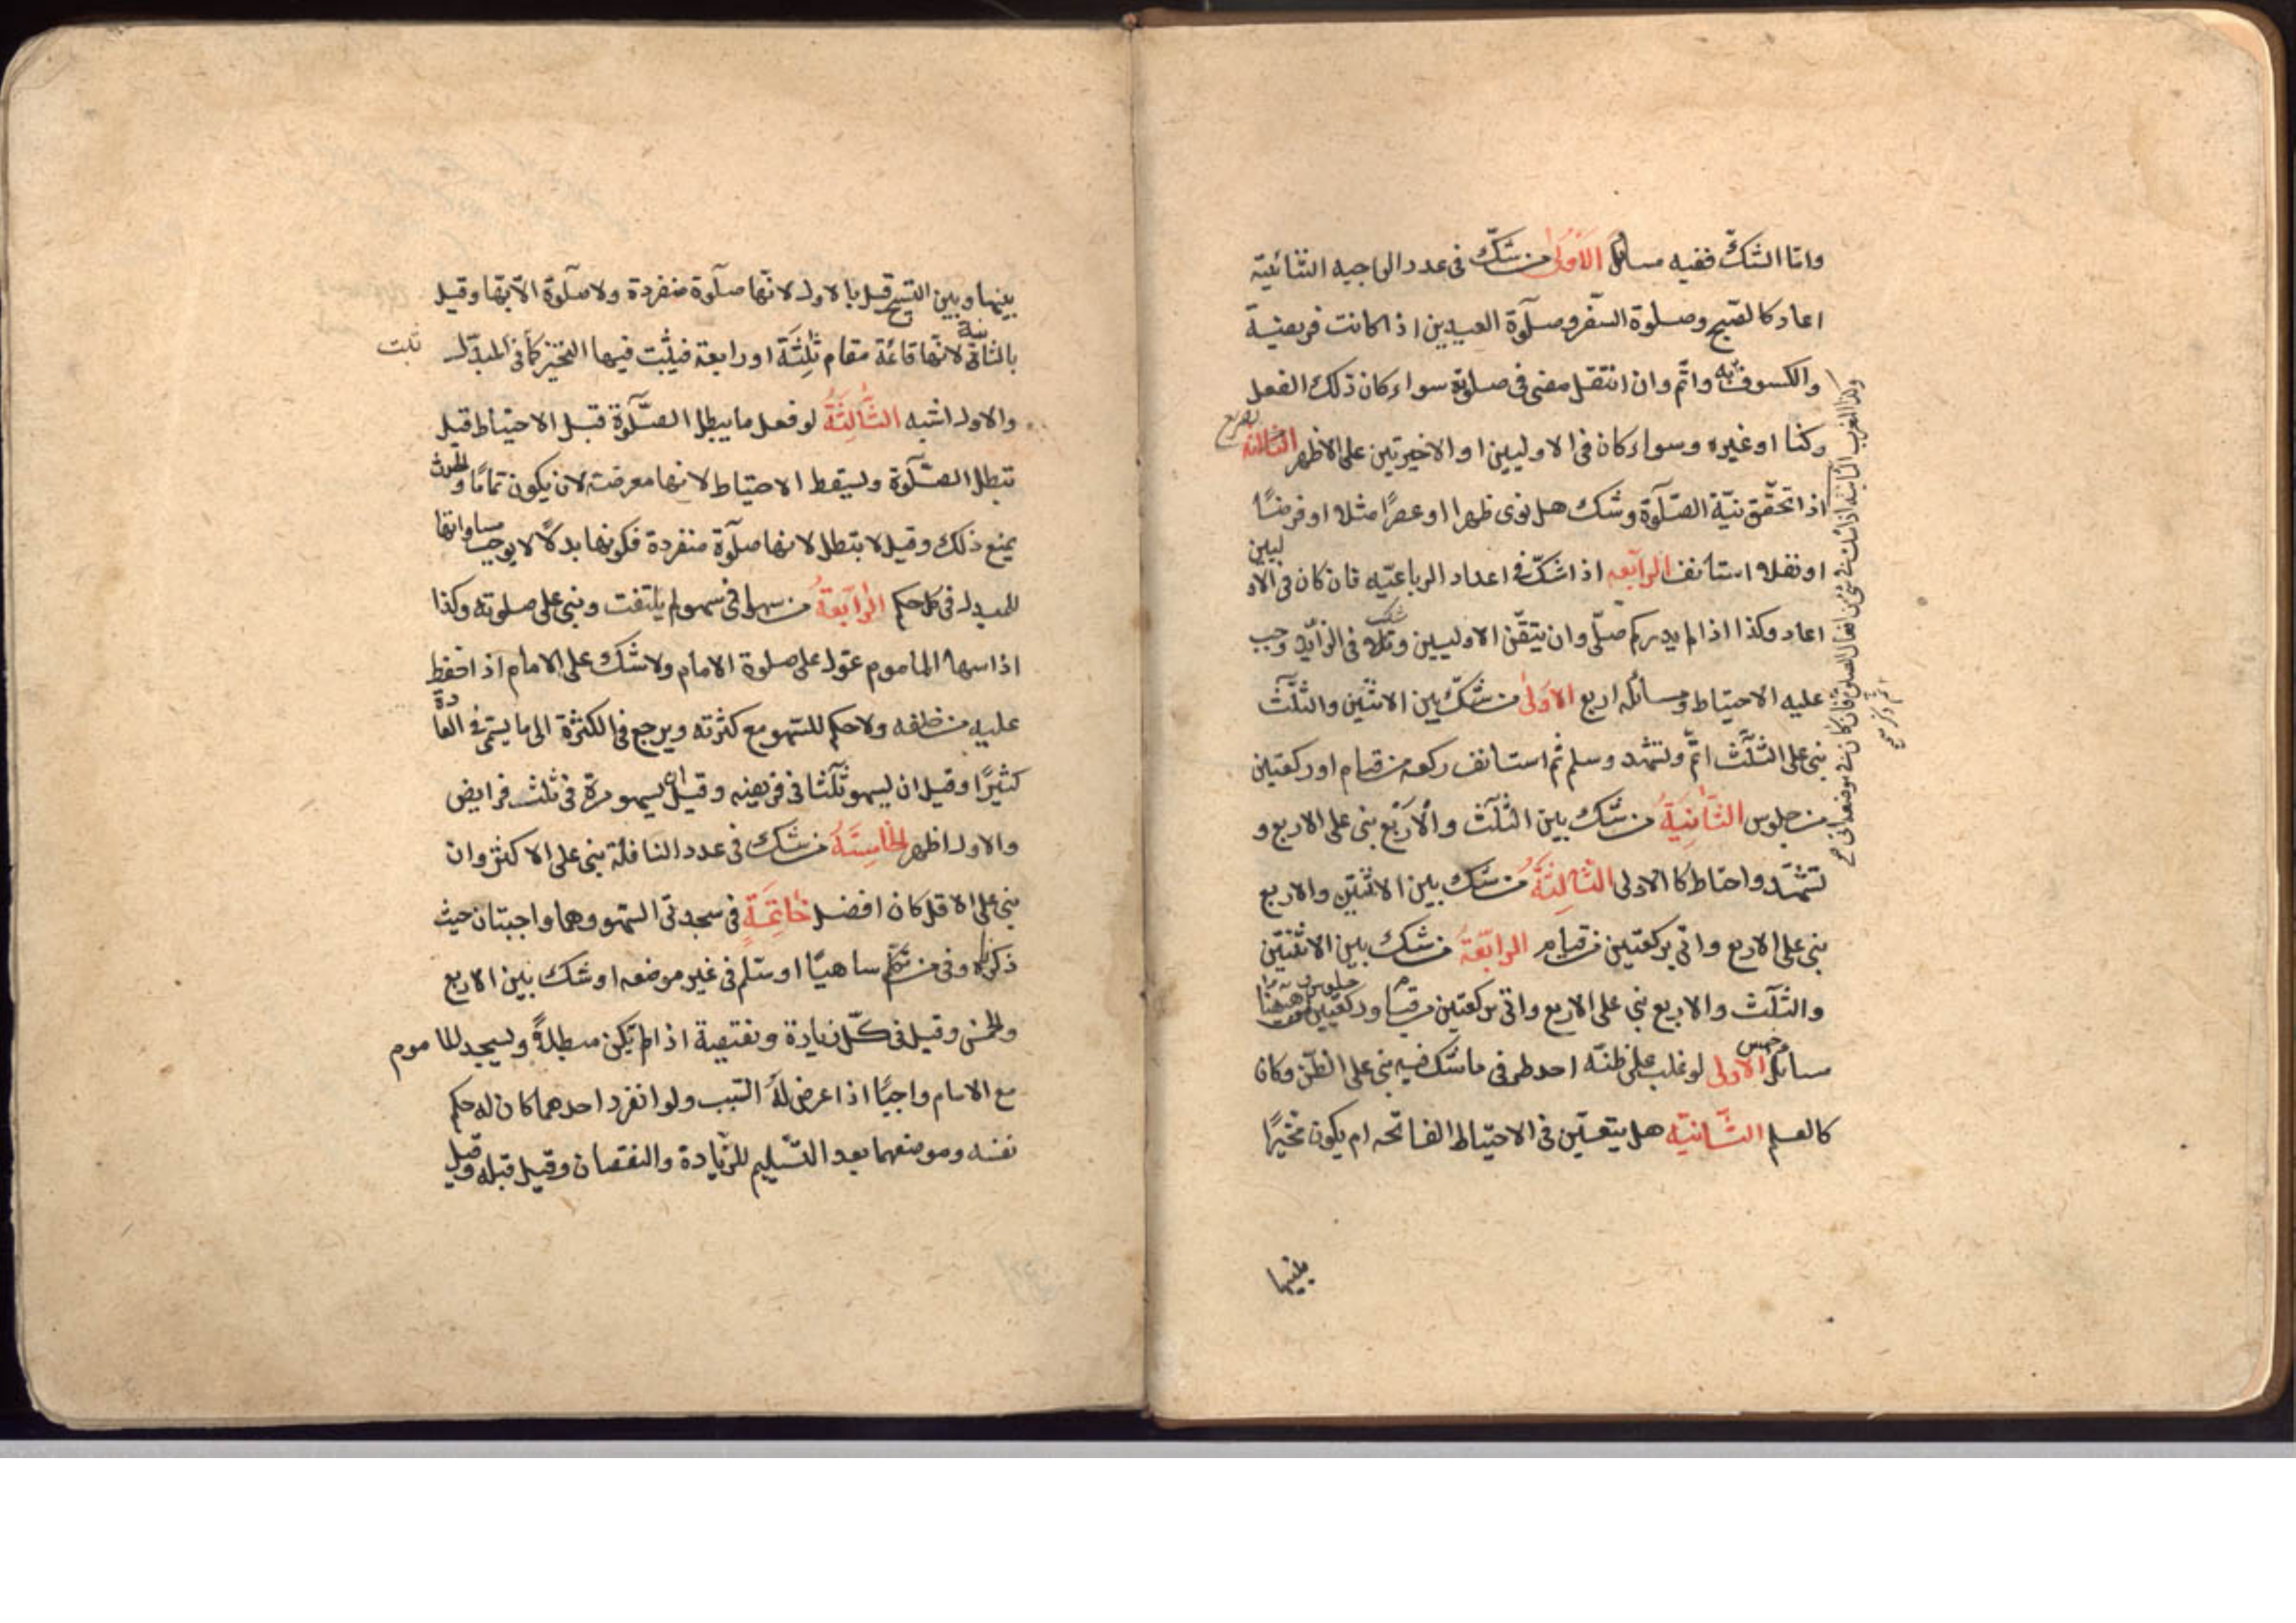 واما الشك ففيه مسائل الاولى من شك فى عدد الواجبه الثنائية
اعاد كالصبح وصلوة السفر وصلوة العيدين اذا كانت فريضية
والكسوف واتم وان انتقل مضى فى صلوته سواء كان ذلك الفعل
ركنا او غيره وسواء كان فى الاوليين او الاخيرتين على الاظهر الثالثه
تفريع
اذا تحقق نية الصلوة وشك هل نوى ظهرا او عصرا مثلا او فرضا
او نفلا استانف الرابعه اذا شك فى اعداد الرباعيه فان كان فى الاوليين
اعاد وكذا اذا لم يدر كم صلى وان تيقن الاوليين وشك فى الزايد وجب
عليه الاحتياط ومسائله اربع الاولى من شك بين الاثنين والثلث
بنى على الثلث اتم وتشهد وسلم ثم استانف ركعه من قيام او ركعتين
من جلوس الثانية من شك بين الثلث والاربع بنى على الاربع و
تشهد واحتاط كا الاولى الثالثة من شك بين الاثنين والاربع
بنى على الاربع واتى بركعتين من قيام الرابعة من شك بين الاثنتين
والثلث والاربع بنى على الاربع واتى بركعتين من قيام وركعتين من جلوس وهيهنا
مسائل خمس الاولى لو غلب على ظنه احد طرفى ما شك فيه بنى على الظن وكان
كالعلم الثانيه هل يتعين فى الاحتياط الفاتحه ام يكون مخيرا
وكذا المغرب الثانية اذا شك فى شئ من افعال الصلوة فان كان فى موضعه اتى
بينها
بينها وبين التسبيح قيل بالاول لانها صلوة منفردة ولا صلوة الا بها وقيل
بالثانى لانها قائمة مقام ثلثة او رابعة فيثبت فيها التخيير كما فى المبدل
والاول اشبه الثالثة لو فعل ما يبطل الصلوة قبل الاحتياط قيل
تبطل الصلوة ويسقط الاحتياط لانها معرضة لان يكون تماما والحدث
يمنع ذلك وقيل لا بتطل لانها صلوة منفردة فكونها بدلا لا يوجب مساواتها
للمبدل فى كل حكم الرابعة من سها فى سهو لم يلتفت وبنى على صلوته وكذا
اذا سها الماموم عول على صلوة الامام ولا شك على الامام اذا حفظ
عليه من خلفه ولا حكم للسهو مع كثرته ويرجع فى الكثرة الى ما يسمى فى العادة
كثيرا وقيل ان يسهو ثلثا فى فريضه وقيل ان يسهو مرة فى ثلث فرايض
والاول اظهر الخامسة من شك فى عدد النافلة بنى على الاكثر وان
بنى على الاقل كان افضل خاتمة فى سجدتى السهو وهما واجبتان حيث
ذكرناه وفى من تكلم ساهيا او سلم فى غير موضعه او شك بين الاربع
والخمس وقيل فى كل زيادة ونقيصة اذا لم يكن مبطلة ويسجد للماموم
مع الامام واجبا اذا عرض له السبب ولو انفرد احدهما كان له حكم
نفسه وموضعهما بعد التسليم للزيادة والنقصان وقيل قبله وقيل